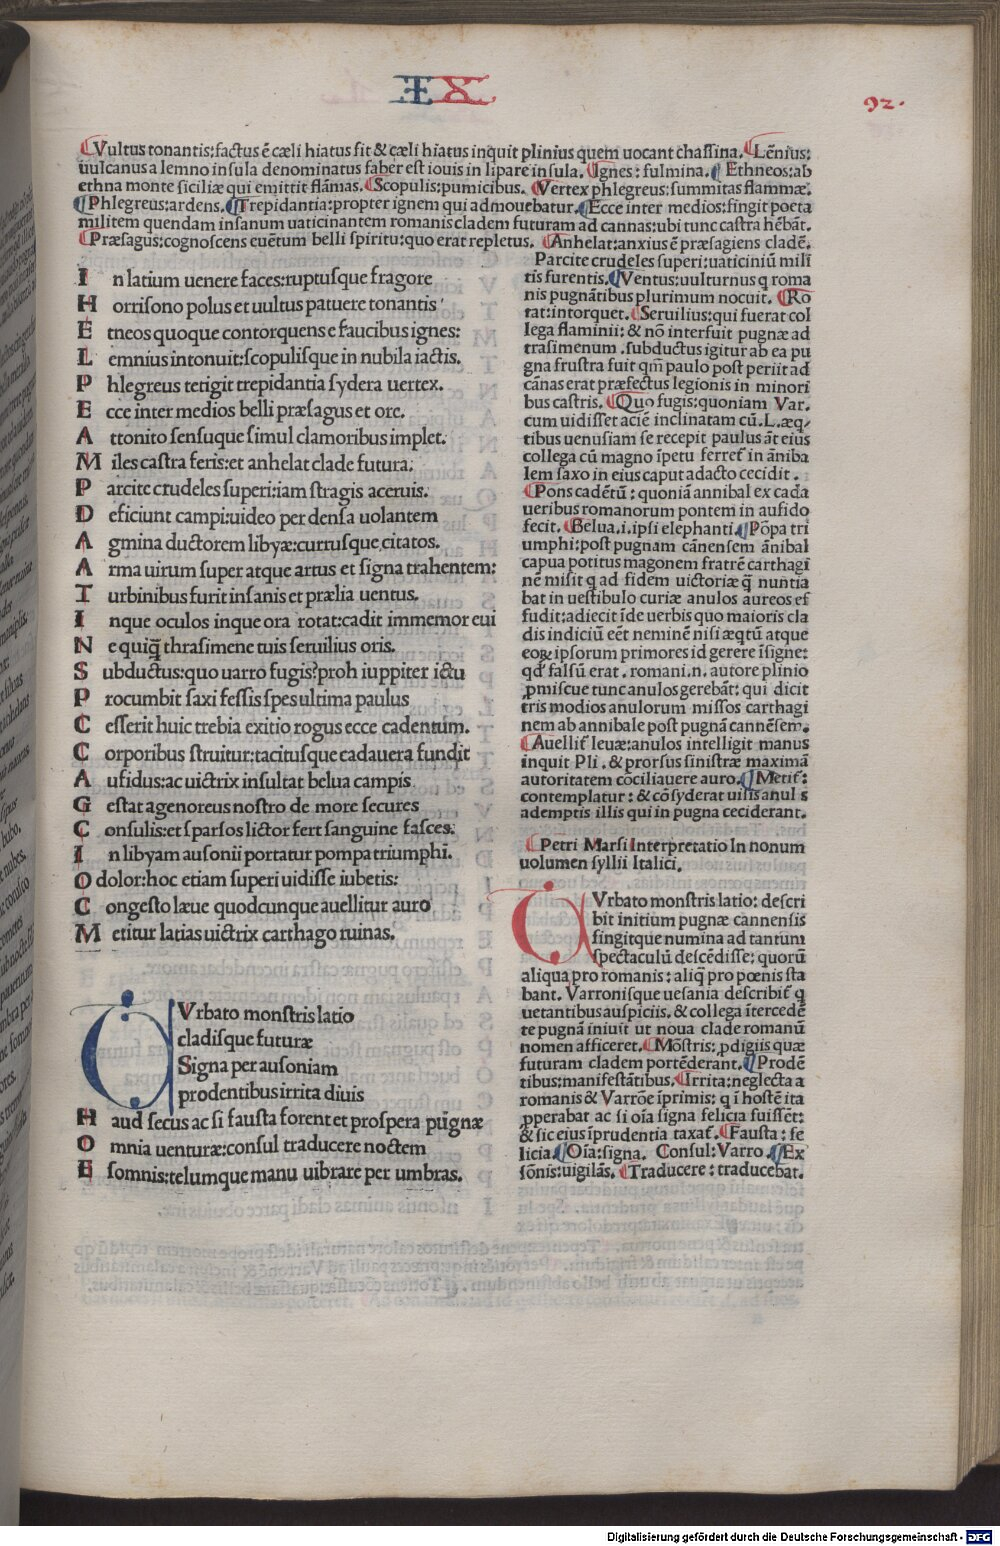 IX
92.
Vultus tonantis:factus ē cæli hiatus sit & cæli hiatus inquit plinius quem uocant chassina. Lēnius:
uulcanus a lemno insula denominatus faber est iouis in lipare insula. Ignes: fulmina. Ethneos:ab
ethna monte siciliæ qui emittit flāmas. Scopulis:pumicibus. Vertex phlegreus:summitas flammæ.
Phlegreus:ardens. Trepidantia:propter ignem qui admouebatur. Ecce inter medios:fingit poeta
militem quendam insanum uaticinantem romanis cladem futuram ad cannas:ubi tunc castra hēbāt.
Præsagus:cognoscens euētum belli spiritu:quo erat repletus. Anhelat:anxius ē præsagiens cladē.
I n latium uenere faces:ruptusque fragore
H orrisono polus et uultus patuere tonantis
E tneos quoque contorquens e faucibus ignes:
L emnius intonuit:scopulisque in nubila iactis.
P hlegreus tetigit trepidantia sydera uertex.
E cce inter medios belli præsagus et ore.
A ttonito sensuque simul clamoribus implet.
M iles castra feris:et anhelat clade futura:
P arcite crudeles superi:iam stragis aceruis.
D eficiunt campi:uideo per densa uolantem
A gmina ductorem libyæ:currusque citatos.
A rma uirum super atque artus et signa trahentem:
T urbinibus furit insanis et prælia uentus.
I nque oculos inque ora rotat:cadit immemor eui
N e quiq̄ thrasimene tuis seruilius oris.
S ubductus:quo uarro fugis?proh iuppiter ictu
P rocumbit saxi fessis spes ultima paulus
C esserit huic trebia exitio rogus ecce cadentum.
C orporibus struitur:tacitusque cadauera fundit
A ufidus:ac uictrix insultat belua campis
G estat agenoreus nostro de more secures
C onsulis:et sparsos lictor fert sanguine fasces:
I n libyam ausonii portatur pompa triumphi.
O dolor:hoc etiam superi uidisse iubetis:
C ongesto læue quodcunque auellitur auro
M etitur latias uictrix carthago ruinas.
Vrbato monstris latio
cladisque futuræ
Signa per ausoniam
prodentibus irrita diuis
H aud secus ac si fausta forent et prospera pugnæ
O mnia uenturæ:consul traducere noctem
E somnis:telumque manu uibrare per umbras.
Parcite crudeles superi:uaticiniū mili
tis furentis. Ventus:uulturnus q roma
nis pugnātibus plurimum nocuit. Ro
tat:intorquet. Seruilius:qui fuerat col
lega flaminii: & nō interfuit pugnæ ad
trasimenum .subductus igitur ab ea pu
gna frustra fuit qm̄ paulo post periit ad
cānas erat præfectus legionis in minori
bus castris. Quo fugis:quoniam Var.
cum uidisset aciē inclinatam cū.L.æq;
tibus uenusiam se recepit paulus āt eius
collega cū magno īpetu ferret̄ in ānība
lem saxo in eius caput adacto cecidit .
Pons cadētū: quoniā annibal ex cada
ueribus romanorum pontem in aufido
fecit. Belua.i.ipsi elephanti. Pōpa tri
umphi:post pugnam cānensem ānibal
capua potitus magonem fratrē carthagi
nē misit q ad fidem uictoriæ q̄ nuntia
bat in uestibulo curiæ anulos aureos ef
fudit:adiecit īde uerbis quo maioris cla
dis indiciū eēt neminē nisi æqtū atque
eoꝝ ipsorum primores id gerere īsigne:
qd̄ falsū erat . romani.n. autore plinio
ꝓmiscue tunc anulos gerebāt: qui dicit
tris modios anulorum missos carthagi
nem ab annibale post pugnā cannēsem.
Auellit̄ leuæ:anulos intelligit manus
inquit Pli . & prorsus sinistræ maximā
autoritatem cōciliauere auro. Metit̄:
contemplatur : & cōsyderat uisis anul s
ademptis illis qui in pugna ceciderant.
Petri Marsi Interpretatio In nonum
uolumen syllii Italici.
Vrbato monstris latio: descri
bit initium pugnæ cannensis
fingitque numina ad tantum
spectaculū descēdisse: quorū
aliqua pro romanis : aliq̄ pro pœnis sta
bant. Varronisque uesania describit̄ q
uetantibus auspiciis. & collega ītercedē
te pugnā iniuit ut noua clade romanū
nomen afficeret. Mōstris: ꝓdigiis quæ
futuram cladem portēderant. Prodē
tibus:manifestātibus. Irrita:neglecta a
romanis & Varrōe īprimis: q ī hostē ita
ꝓperabat ac si oīa signa felicia fuissēt:
& sic eius īprudentia taxat̄. Fausta : fe
licia. Oīa:signa. Consul: Varro. Ex
sōnis:uigilās. Traducere : traducebat.
Digitalisierung gefördert durch die Deutsche Forschungsgemeinschaft - DFG